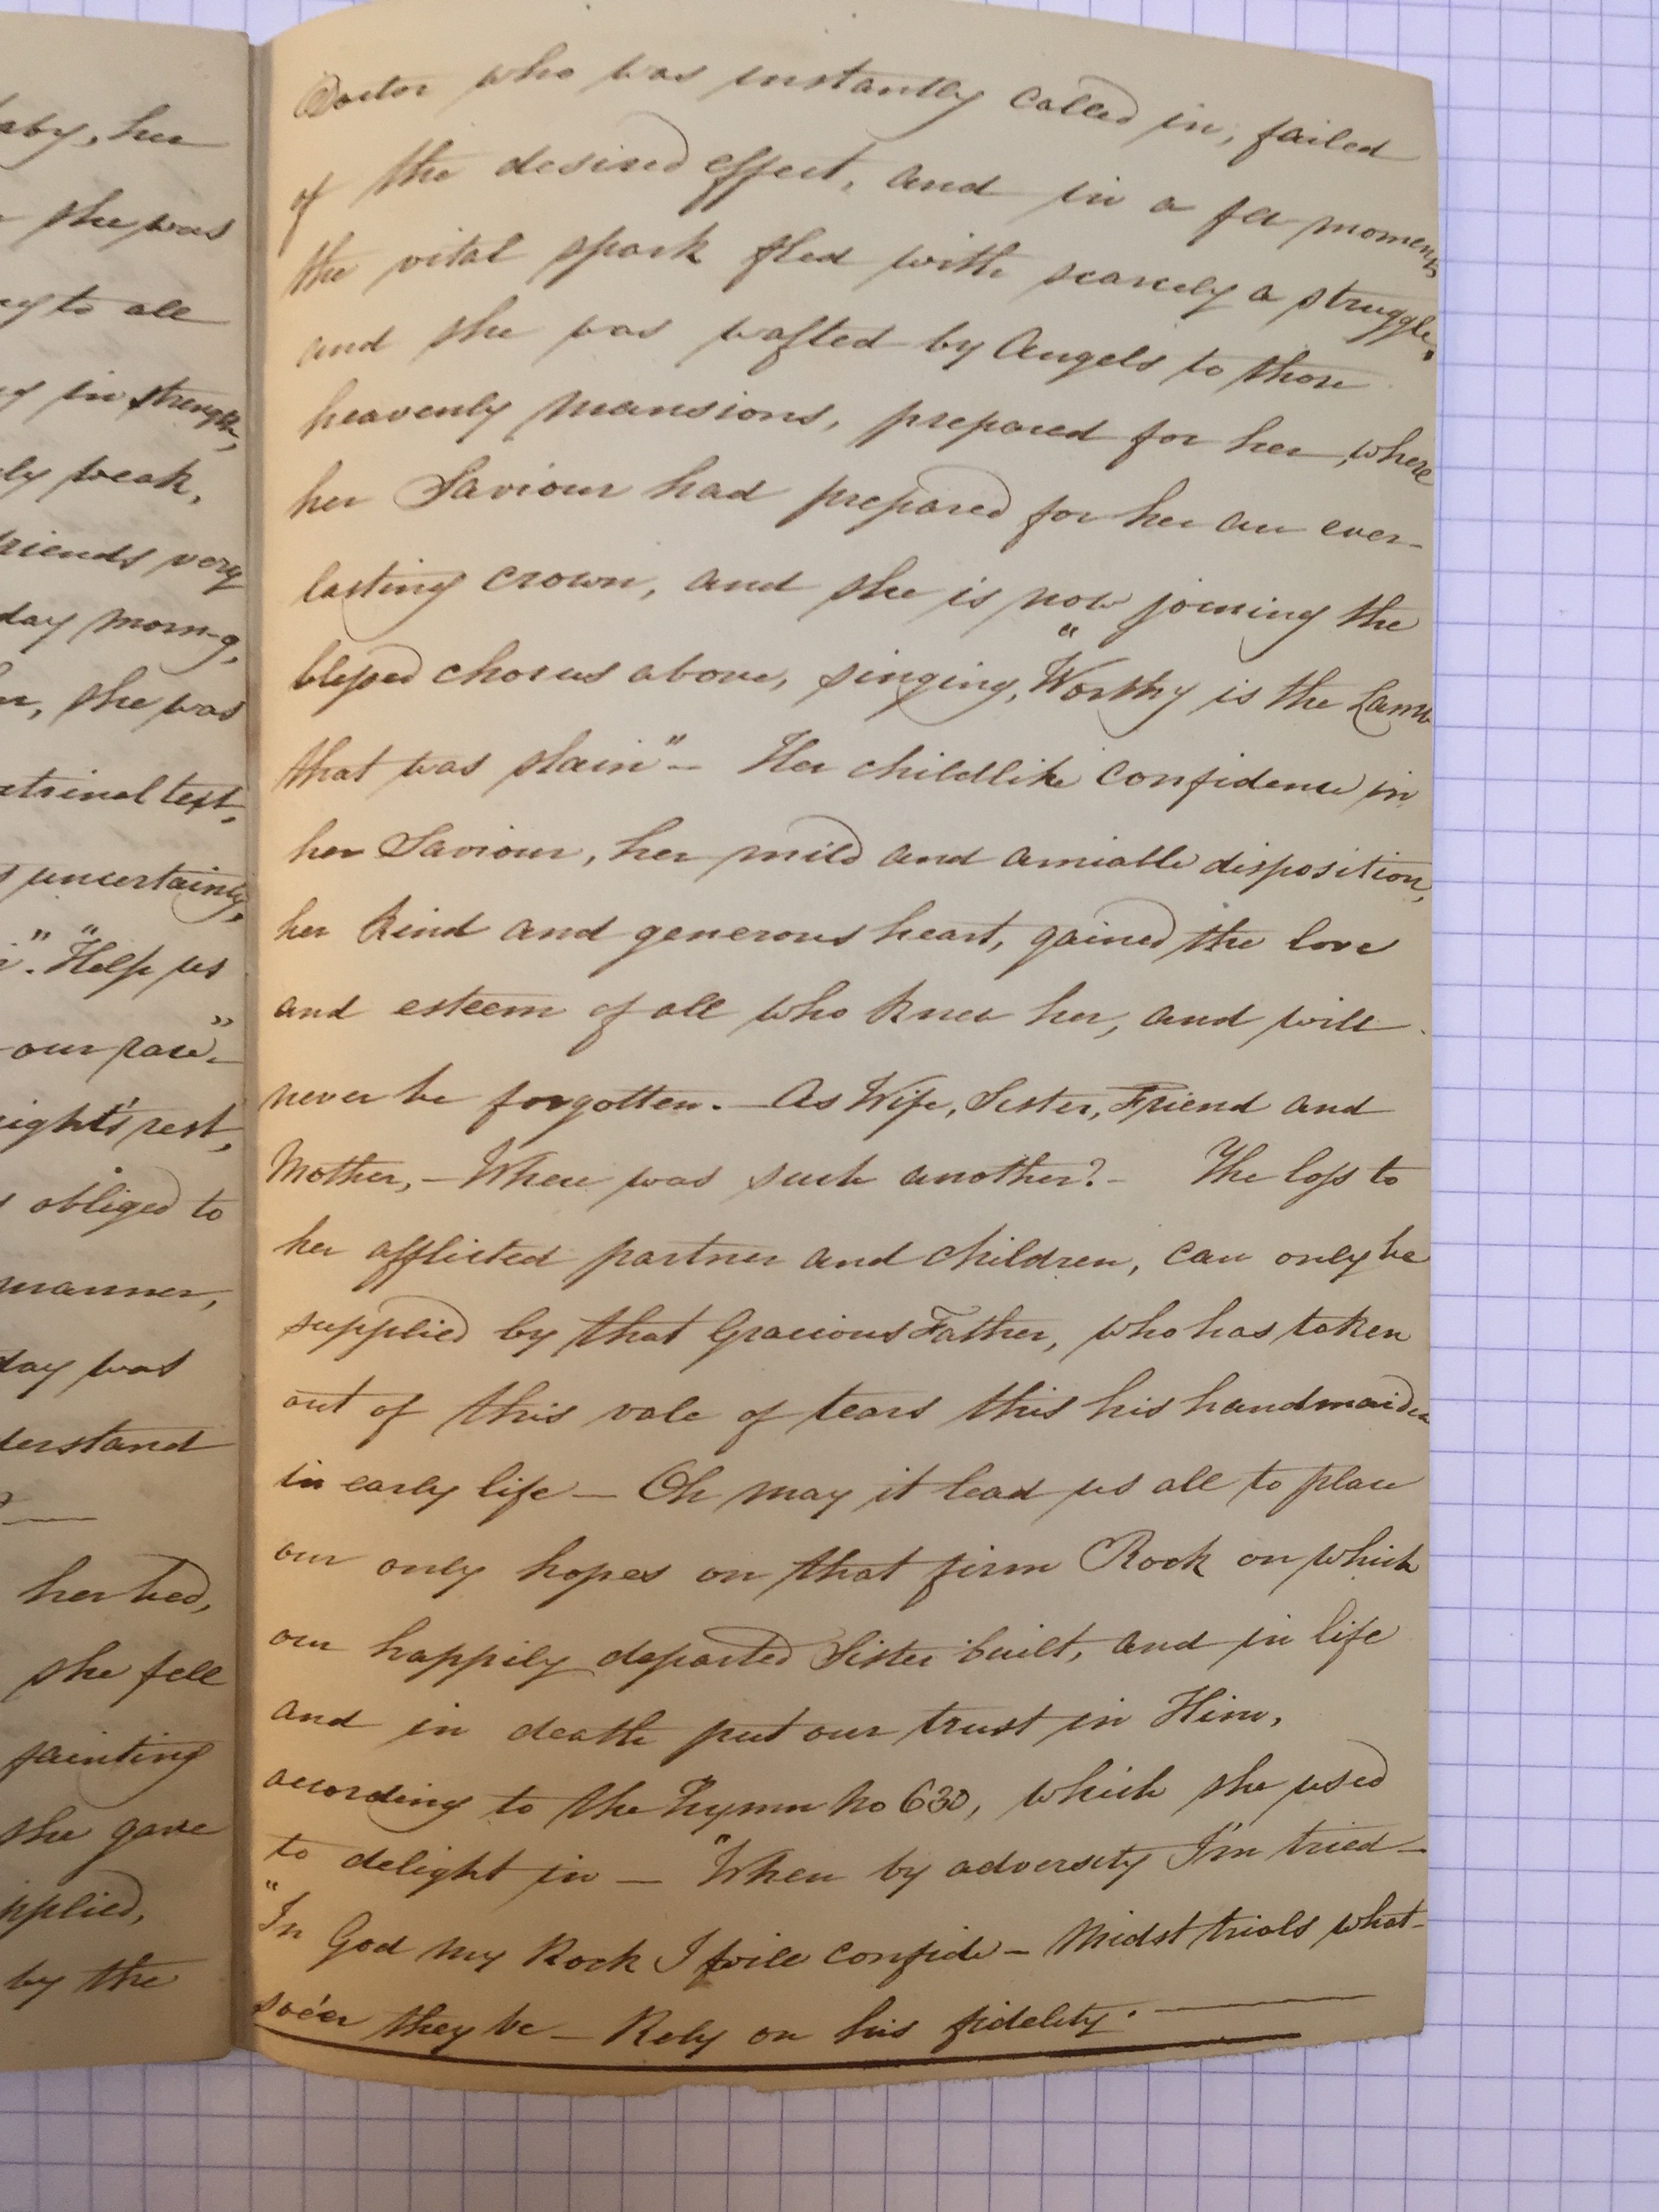 aby, her
she was
ay to all
in strength,
ly weak,
riends very
day morng,
she was
ctrinal text,
uncertainty,
" "Help us
our race."
ight's rest,
obliged to
manner,
day was
derstand
her bed,
she fell
fainting
she gave
pplied,
by the
Doctor who was instantly called in, failed
of the desired effect, and in a few moments
the vital spark fled with scarcely a struggle,
and she was wafted by Angels to those
heavenly mansions, prepared for her, where
her Saviour had prepared for her an ever-
lasting crown, and she is now joining the
blessed chorus above, singing, "Worthy is the Lamb
that was slain" – Her childlike confidence in
her Saviour, her mild and amiable disposition,
her kind and generous heart, gained the love
and esteem of all who knew her, and will
never be forgotten. – As Wife, Sister, Friend and
Mother, – Where was such another? – The loss to
her afflicted partner and children, can only be
supplied by that Gracious Father, who has taken
out of this vale of tears this his handmaiden
in early life – Oh may it lead us all to place
our only hopes on that firm Rock on which
our happily departed Sister built, and in life
and in death put our trust in Him,
according to the hymn No 630, which she used
to delight in – "When by adversity I'm tried –
"In God my Rock I will confide – Midst trials what-
soe'er they be – Rely on his fidelity. –